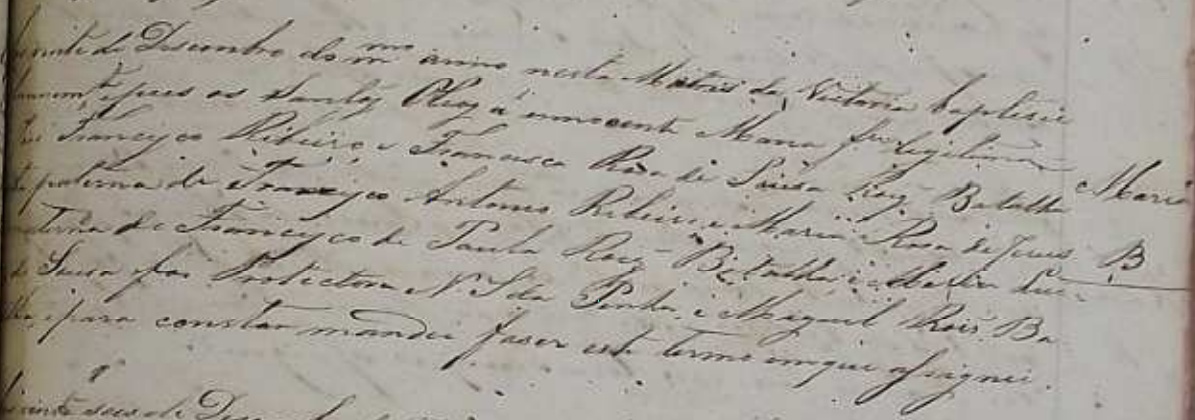 vinte de Desembro do m.mo anno nesta Matris da Victoria baptisei
puis os Santos Oleos á innocente Maria fa legitima
Francisco Ribeiro e Francisca Rosa de Sousa Roiz Batalha
paterna de Francisco Antonio Ribeiro, e Maria Rosa de Jesus
terna de Francisco de Paula Roiz Batalha, e Maria
de Sousa foi Protectora N S da Penha, e Miguel Rois Ba
e para constar mandei faser este termo em que assignei.
vinte seis de
Maria
B